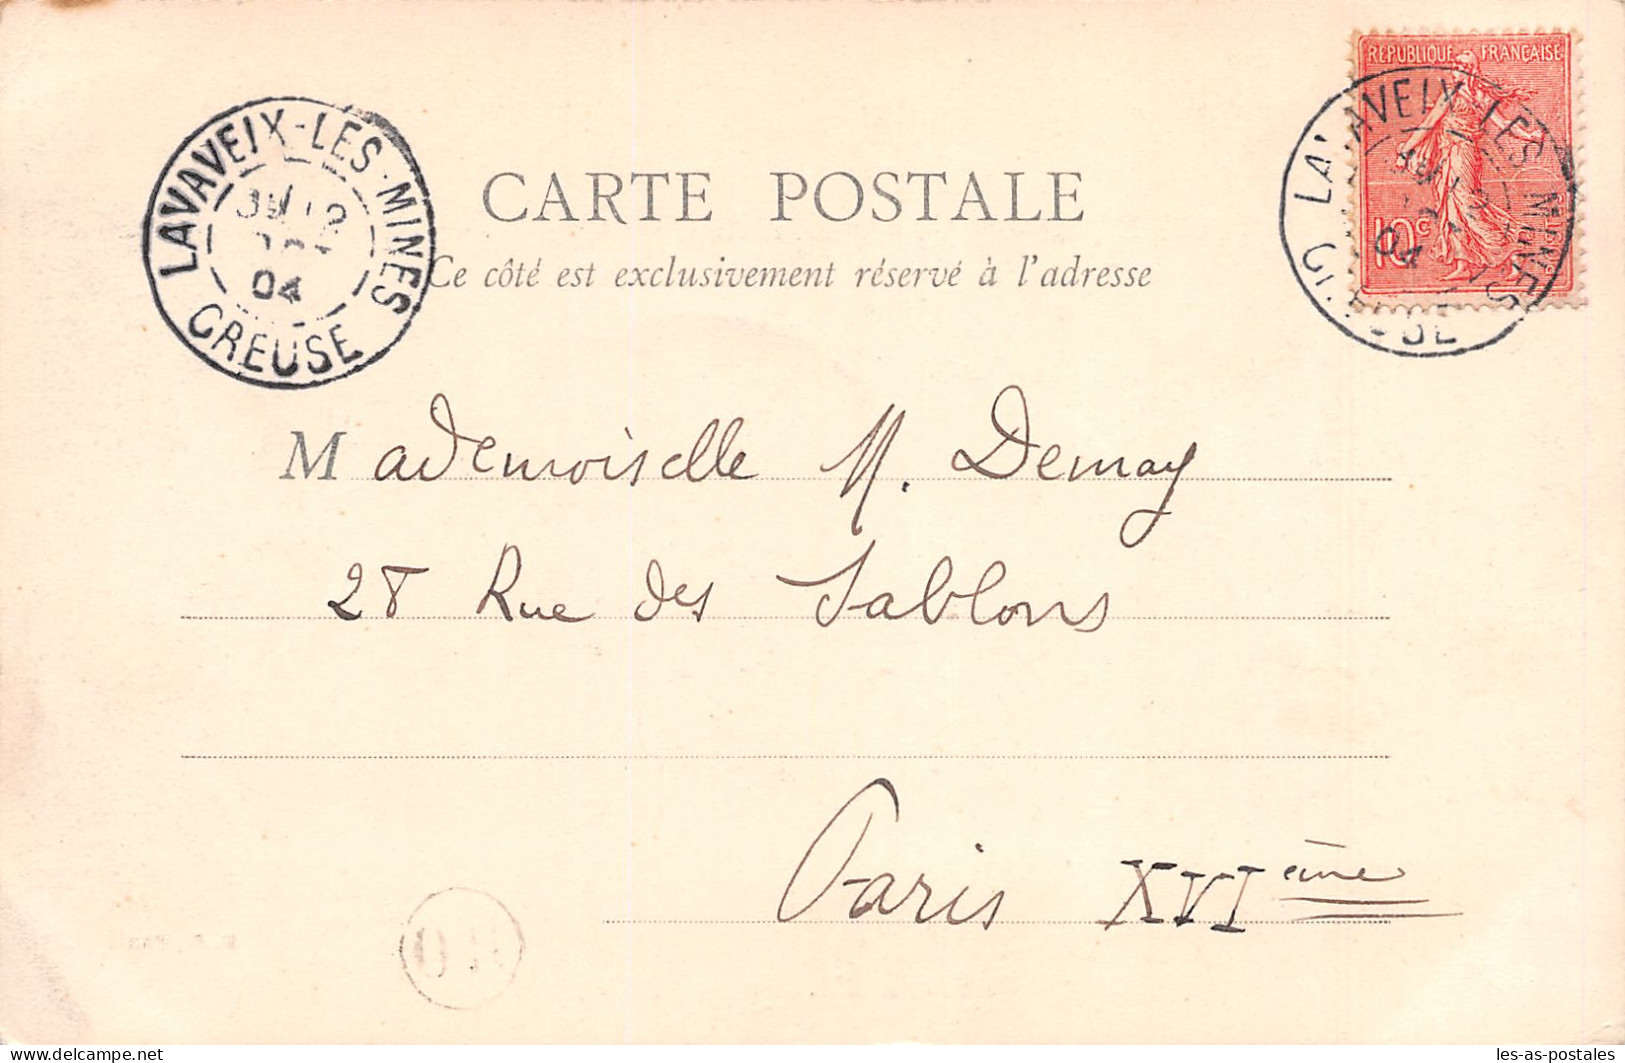 REPUBLIQUE FRANÇAISE
10c
LAVAVEIX-LES-MINES
04
CREUSE
LAVAVEIX-LES-MINES
04
CARTE POSTALE
Ce côté est exclusivement réservé à l'adresse
Mademoiselle M. Demay
28 Rue des Sablons
Paris XVIème
delcampe.net
les-as-postales